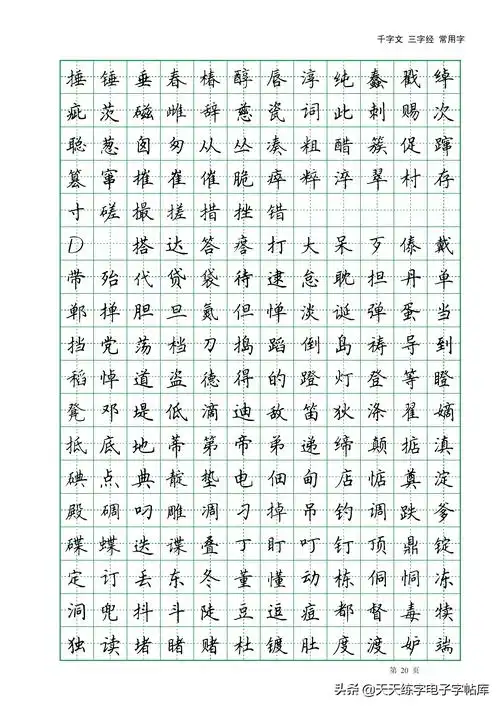 千字文 三字经 常用字
捶 锤 垂 春 椿 醇 唇 淳 纯 蠢 戳 绰
疵 茨 磁 雌 辞 慈 瓷 词 此 刺 赐 次
聪 葱 囱 匆 从 丛 凑 粗 醋 簇 促 蹿
篡 窜 摧 崔 催 脆 瘁 粹 淬 翠 村 存
寸 磋 撮 搓 措 挫 错
D 搭 达 答 瘩 打 大 呆 歹 傣 戴
带 殆 代 贷 袋 待 逮 怠 耽 担 丹 单
郸 掸 胆 旦 氮 但 惮 淡 诞 弹 蛋 当
挡 党 荡 档 刀 捣 蹈 倒 岛 祷 导 到
稻 悼 道 盗 德 得 的 蹬 灯 登 等 瞪
凳 邓 堤 低 滴 迪 敌 笛 狄 涤 翟 嫡
抵 底 地 蒂 第 帝 弟 递 缔 颠 掂 滇
碘 点 典 靛 垫 电 佃 甸 店 惦 奠 淀
殿 碉 叼 雕 凋 刁 掉 吊 钓 调 跌 爹
碟 蝶 迭 谍 叠 丁 盯 叮 钉 顶 鼎 锭
定 订 丢 东 冬 董 懂 动 栋 侗 恫 冻
洞 兜 抖 斗 陡 豆 逗 痘 都 督 毒 犊
独 读 堵 睹 赌 杜 镀 肚 度 渡 妒 端
第 20 页
头条 @天天练字电子字帖库